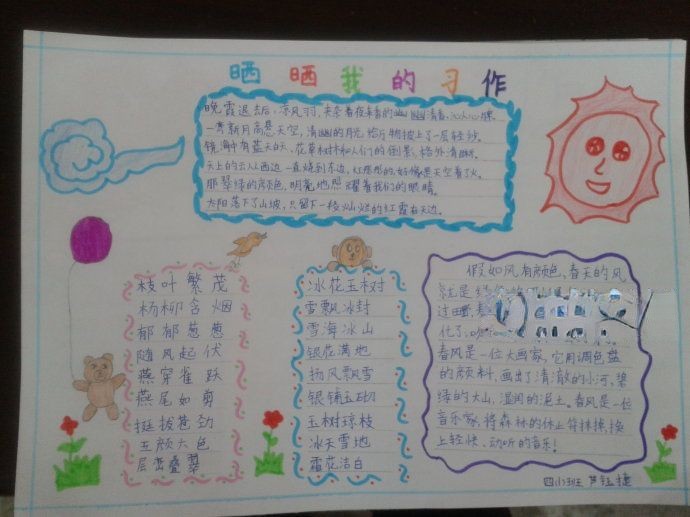 晒晒我的习作
晚霞退去后,凉风习习,夹杂着夜来香的幽幽清香,沁人心脾。
一弯新月高悬天空,清幽的月光给万物披上了一层轻纱。
镜湖中有蓝天白云、花草树木和人们的倒影,格外清晰。
天上的云从西边一直烧到东边,红彤彤的,好像是天空着了火。
那翠绿的颜色,明亮地照耀着我们的眼睛。
太阳落下了山坡,只留下一棱灿烂的红霞在天边。
枝叶繁茂
杨柳含烟
郁郁葱葱
随风起伏
燕穿雀跃
燕尾如剪
挺拔苍劲
五颜六色
层峦叠翠
冰花玉树
雪飘冰封
雪海冰山
银花满地
扬风飘雪
银铺玉砌
玉树琼枝
冰天雪地
霜花洁白
假如风有颜色,春天的风
就是
过
化了,
春风是一位大画家,它用调色盘
的颜料,画出了清澈的小河,碧
绿的大山,湿润的泥土。春风是一位
音乐家,将森林的休止符抹掉,换
上轻快、动听的音乐!
四(1)班 芦钰捷